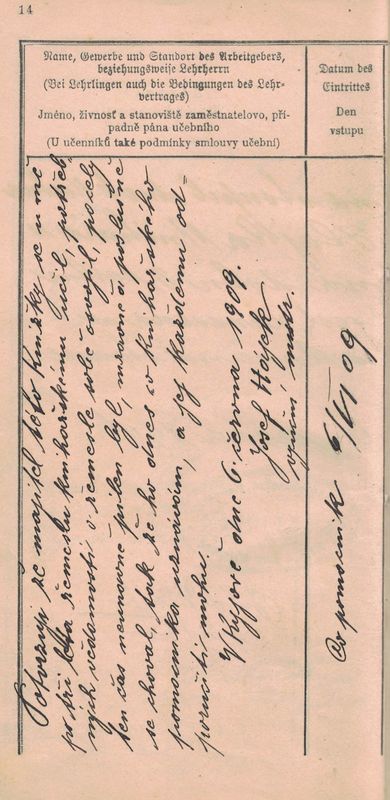 14
Name, Gewerbe und Standort des Arbeitgebers,
beziehungsweise Lehrherrn
(Bei Lehrlingen auch die Bedingungen des Lehr-
vertrages)
Jméno, živnosť a stanoviště zaměstnatelovo, pří-
padně pána učebního
(U učenníků také podmínky smlouvy učební)
Datum des
Eintrittes
Den
vstupu
Potvrzuji že majitel této knížky se u mě
po tři léta řemeslu knihařskému učil, potřeb
ných vědomostí v řemesle sobě osvojil, po celý
ten čas neunavně pilen byl, mravně a poslušně
se choval, tak že ho dnes co knihařského
pomocníka uznávám, a jej každému od=
poručiti mohu.
V Kyjově dne 6. června 1909.
Josef Hájek
mistr.
Co pomocník 6/VI 09